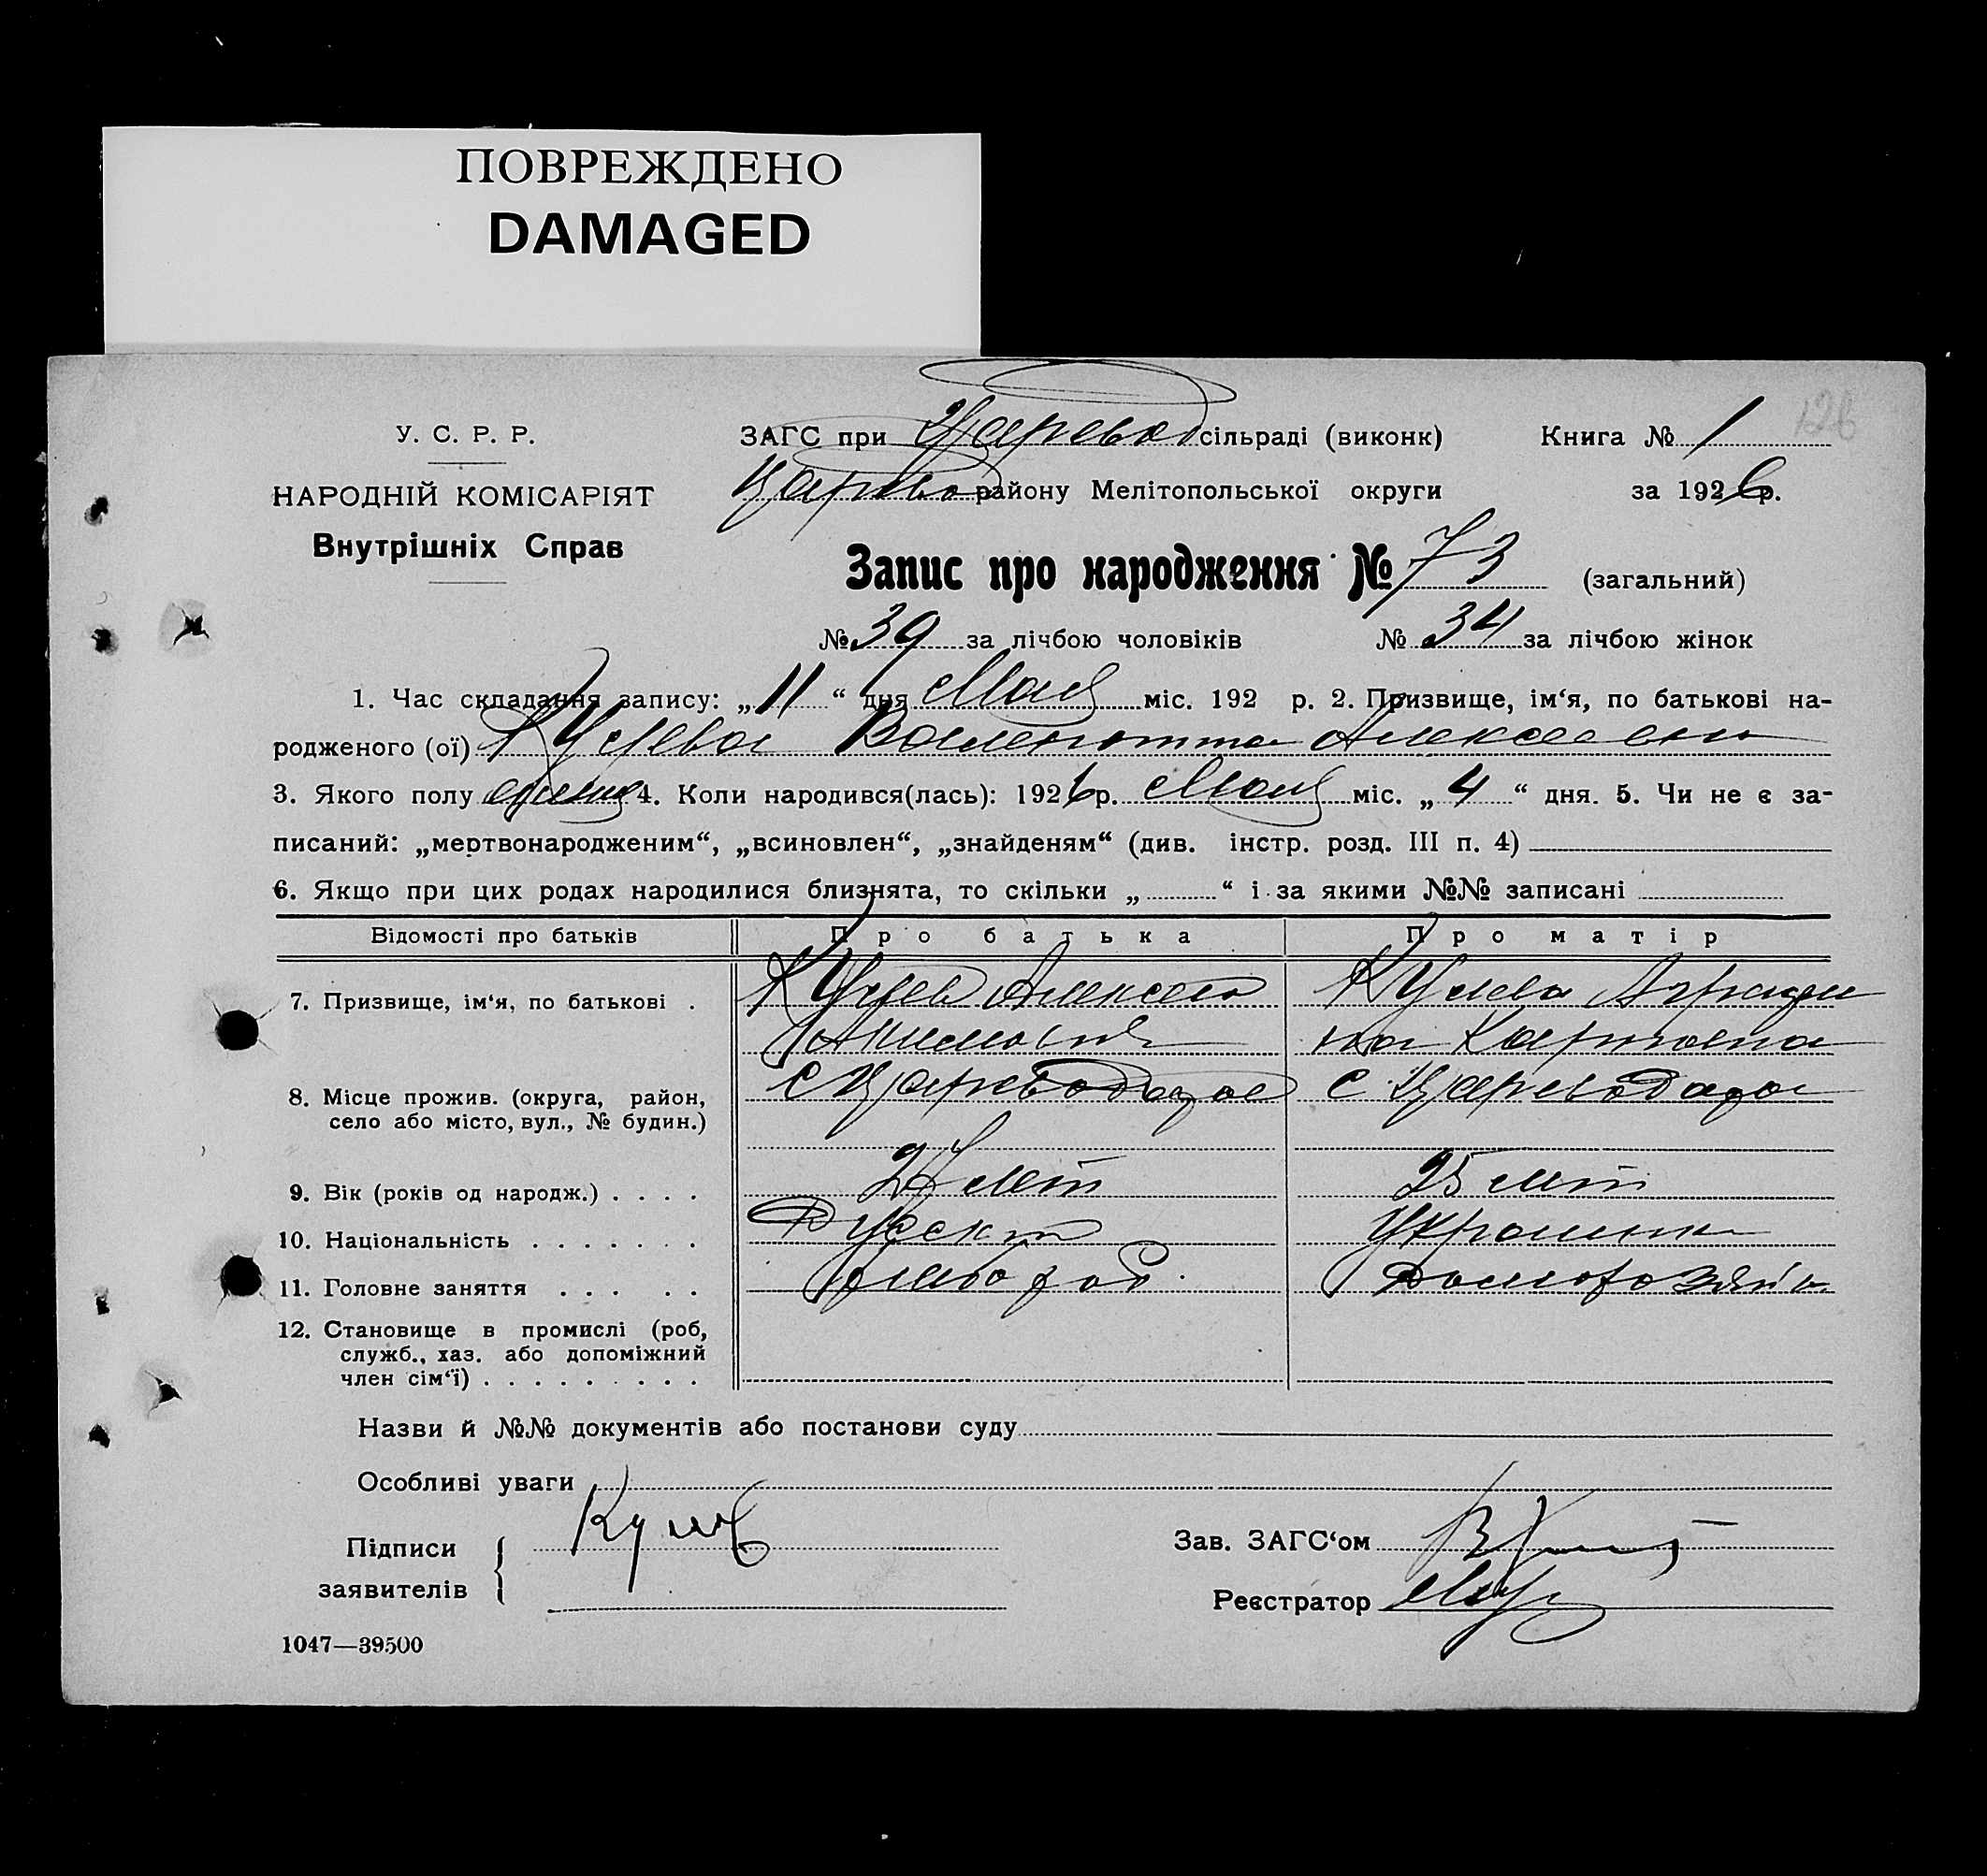 ПОВРЕЖДЕНО
DAMAGED
126
У. С. Р. Р.
НАРОДНІЙ КОМІСАРІЯТ
Внутрішніх Справ
ЗАГС при Царевод сільраді (виконк) Книга № 1
району Мелітопольської округи за 1926 р.
Запис про народження № 73 (загальний)
№ 39 за лічбою чоловіків № 34 за лічбою жінок
1. Час складання запису: „11“ дня Мая міс. 192 р. 2. Призвище, ім‘я, по батькові на-
родженого (ої) Кулева Валентина Алексеевна
3. Якого полу 4. Коли народився(лась): 1926 р. Мая міс. „4“ дня. 5. Чи не є за-
писаний: „мертвонародженим“, „всиновлен“, „знайденям“ (див. інстр. розд. III п. 4)
6. Якщо при цих родах народилися близнята, то скільки „ “ і за якими №№ записані
Відомості про батьків Про батька Про матір
7. Призвище, ім‘я, по батькові . Кулев Алексей Кулева Агрипи
на Карповна
8. Місце прожив. (округа, район, с Цареводаровка с Цареводаровка
село або місто, вул., № будин.)
9. Вік (років од народж.) . . . . 27 лет 25 лет
10. Національність . . . . . . . Русск Украинка
11. Головне заняття . . . . . хлебороб. Домохозяйка
12. Становище в промислі (роб,
служб., хаз. або допоміжний
член сім‘ї) . . . . . . . . .
Назви й №№ документів або постанови суду
Особливі уваги
Підписи Кулев
заявителів
Зав. ЗАГС‘ом
Реєстратор
1047—39500